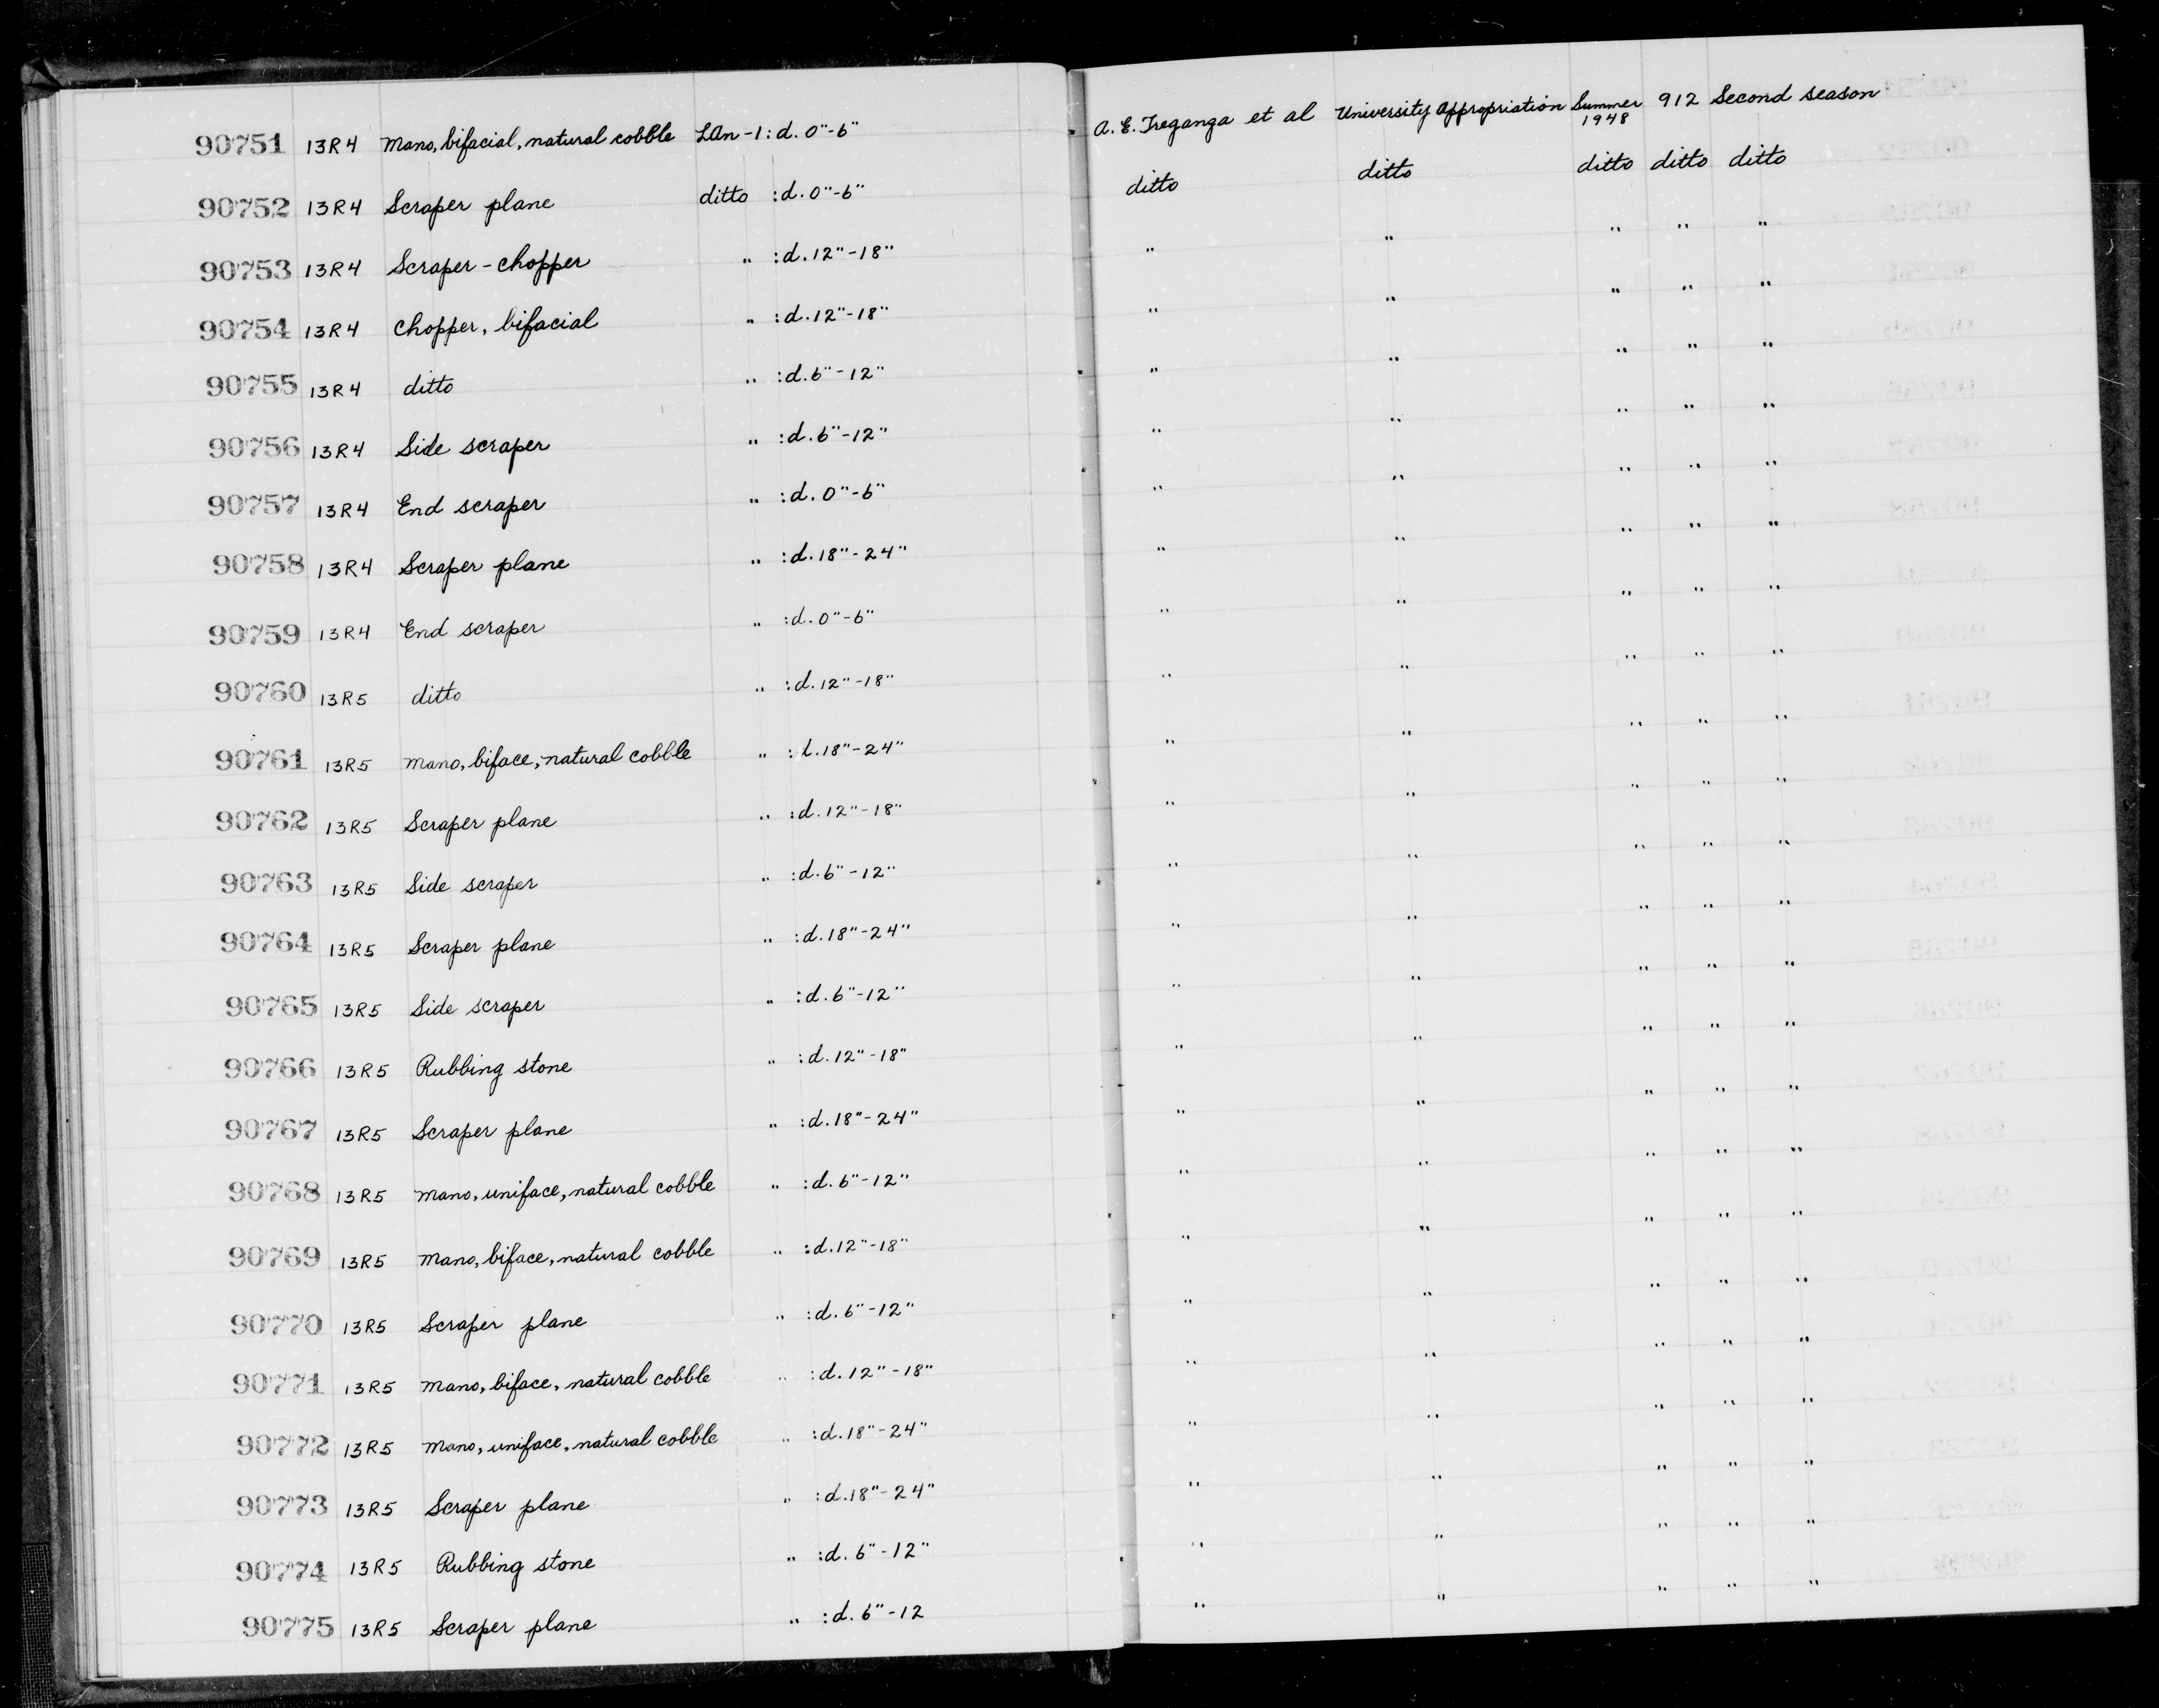 90751 13R4 Mano, bifacial, natural cobble LAn-1 : d. 0"-6" A. E. Treganga et al University Appropriation Summer 1948 912 Second season
90752 13R4 Scraper plane ditto : d. 0"-6" ditto ditto ditto ditto ditto
90753 13R4 Scraper-chopper " : d. 12"-18" " " " " "
90754 13R4 Chopper, bifacial " : d. 12"-18" " " " " "
90755 13R4 ditto " : d. 6"-12" " " " " "
90756 13R4 Side scraper " : d. 6"-12" " " " " "
90757 13R4 End scraper " : d. 0"-6" " " " " "
90758 13R4 Scraper plane " : d. 18"-24" " " " " "
90759 13R4 End scraper " : d. 0"-6" " " " " "
90760 13R5 ditto " : d. 12"-18" " " " " "
90761 13R5 Mano, biface, natural cobble " : d. 18"-24" " " " " "
90762 13R5 Scraper plane " : d. 12"-18" " " " " "
90763 13R5 Side scraper " : d. 6"-12" " " " " "
90764 13R5 Scraper plane " : d. 18"-24" " " " " "
90765 13R5 Side scraper " : d. 6"-12" " " " " "
90766 13R5 Rubbing stone " : d. 12"-18" " " " " "
90767 13R5 Scraper plane " : d. 18"-24" " " " " "
90768 13R5 Mano, uniface, natural cobble " : d. 6"-12" " " " " "
90769 13R5 Mano, biface, natural cobble " : d. 12"-18" " " " " "
90770 13R5 Scraper plane " : d. 6"-12" " " " " "
90771 13R5 Mano, biface, natural cobble " : d. 12"-18" " " " " "
90772 13R5 Mano, uniface, natural cobble " : d. 18"-24" " " " " "
90773 13R5 Scraper plane " : d. 18"-24" " " " " "
90774 13R5 Rubbing stone " : d. 6"-12" " " " " "
90775 13R5 Scraper plane " : d. 6"-12 " " " " "